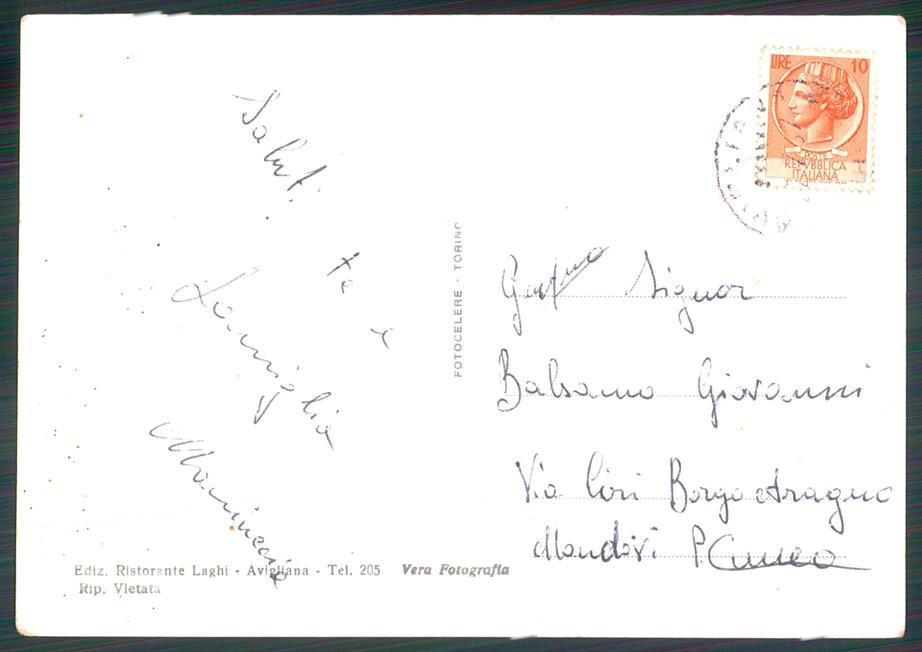 LIRE 10
POSTE
REPVBBLICA
ITALIANA
Saluti
te e
Famiglia
FOTOCELERE - TORINO
Signor
Balsamo Giovanni
Via Cori Borgo Aragno
Mondovi P. Cuneo
Ediz. Ristorante Laghi - Avigliana - Tel. 205 Vera Fotografia
Rip. Vietata